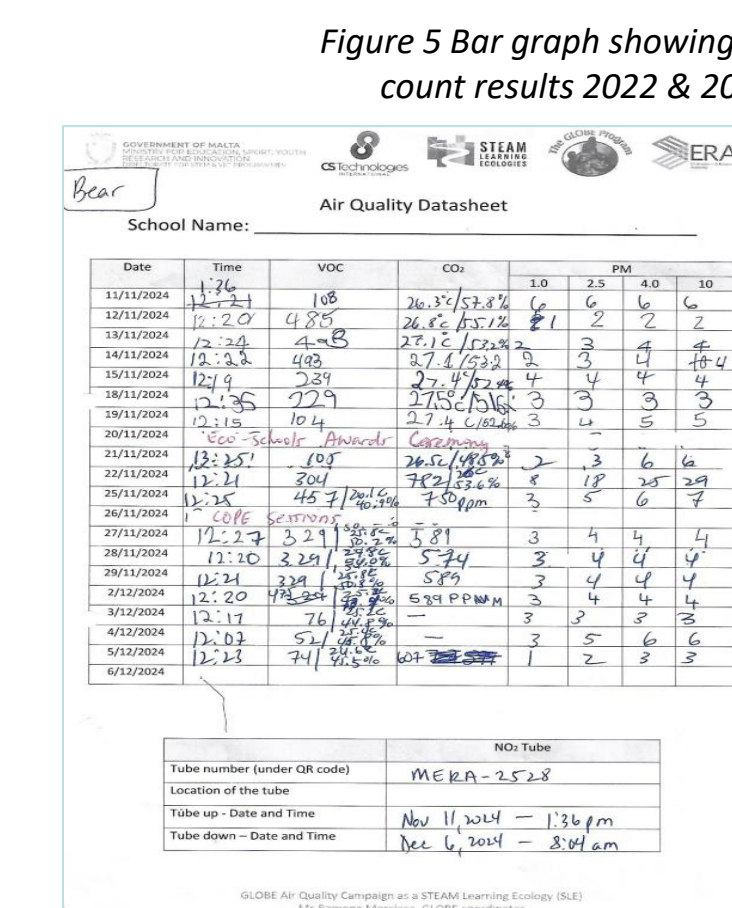 Figure 5 Bar graph showing
count results 2022 & 20
GOVERNMENT OF MALTA
MINISTRY FOR EDUCATION, SPORT, YOUTH
RESEARCH AND INNOVATION
DIRECTORATE FOR STEM & VET PROGRAMMES
CSTechnologies
INTERNATIONAL
STEAM
LEARNING
ECOLOGIES
The GLOBE Program
ERA
Bear
Air Quality Datasheet
School Name:
Date Time VOC CO2 PM
1.0 2.5 4.0 10
1:36
11/11/2024 12:21 108 26.3°c/57.8% 6 6 6 6
12/11/2024 12:20 485 26.8°c/55.1% 1 2 2 2
13/11/2024 12:24 27.1c/53.2% 2 3 4 4
14/11/2024 12:22 493 27.1/53.2 2 3 4 4
15/11/2024 12:19 239 27.4°/52.4% 4 4 4 4
18/11/2024 12:35 229 27.5°c/ 3 3 3 3
19/11/2024 12:15 104 27.4 C/ 3 4 5 5
20/11/2024 Eco-Schools Awards Ceremony - -
21/11/2024 13:25 105 26.5c/48.5% 2 3 6 6
22/11/2024 12:21 304 782/ 53.6% 8 18 25 29
25/11/2024 12:25 457/20.1c 40.9% 750ppm 3 5 6 7
26/11/2024 COPE Sessions
27/11/2024 12:27 329/25.8c 50.2% 589 3 4 4 4
28/11/2024 12:20 329/ 574 3 4 4 4
29/11/2024 12:21 329/ 589 3 4 4 4
2/12/2024 12:20 589 PPM 3 4 4 4
3/12/2024 12:17 76/25.2c 44.8% — 3 3 3 3
4/12/2024 12:07 52/25.4c — 3 5 6 6
5/12/2024 12:23 74/24.6c 45.5% 607 1 2 3 3
6/12/2024
NO2 Tube
Tube number (under QR code) MERA-2528
Location of the tube
Tube up - Date and Time Nov 11, 2024 — 1:36 pm
Tube down – Date and Time Dec 6, 2024 — 8:04 am
GLOBE Air Quality Campaign as a STEAM Learning Ecology (SLE)
GLOBE coordinator